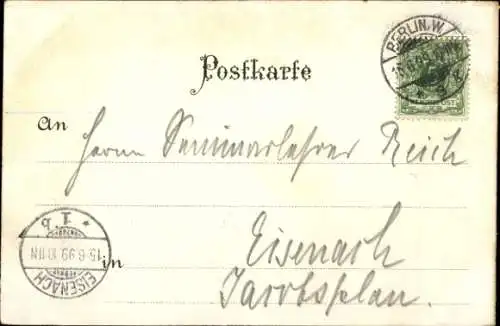 BERLIN.W.
Postkarte
An
Herrn Seminarlehrer Reich
* 1 b
15.6.99
EISENACH
in Eisenach
Jacobsplan.